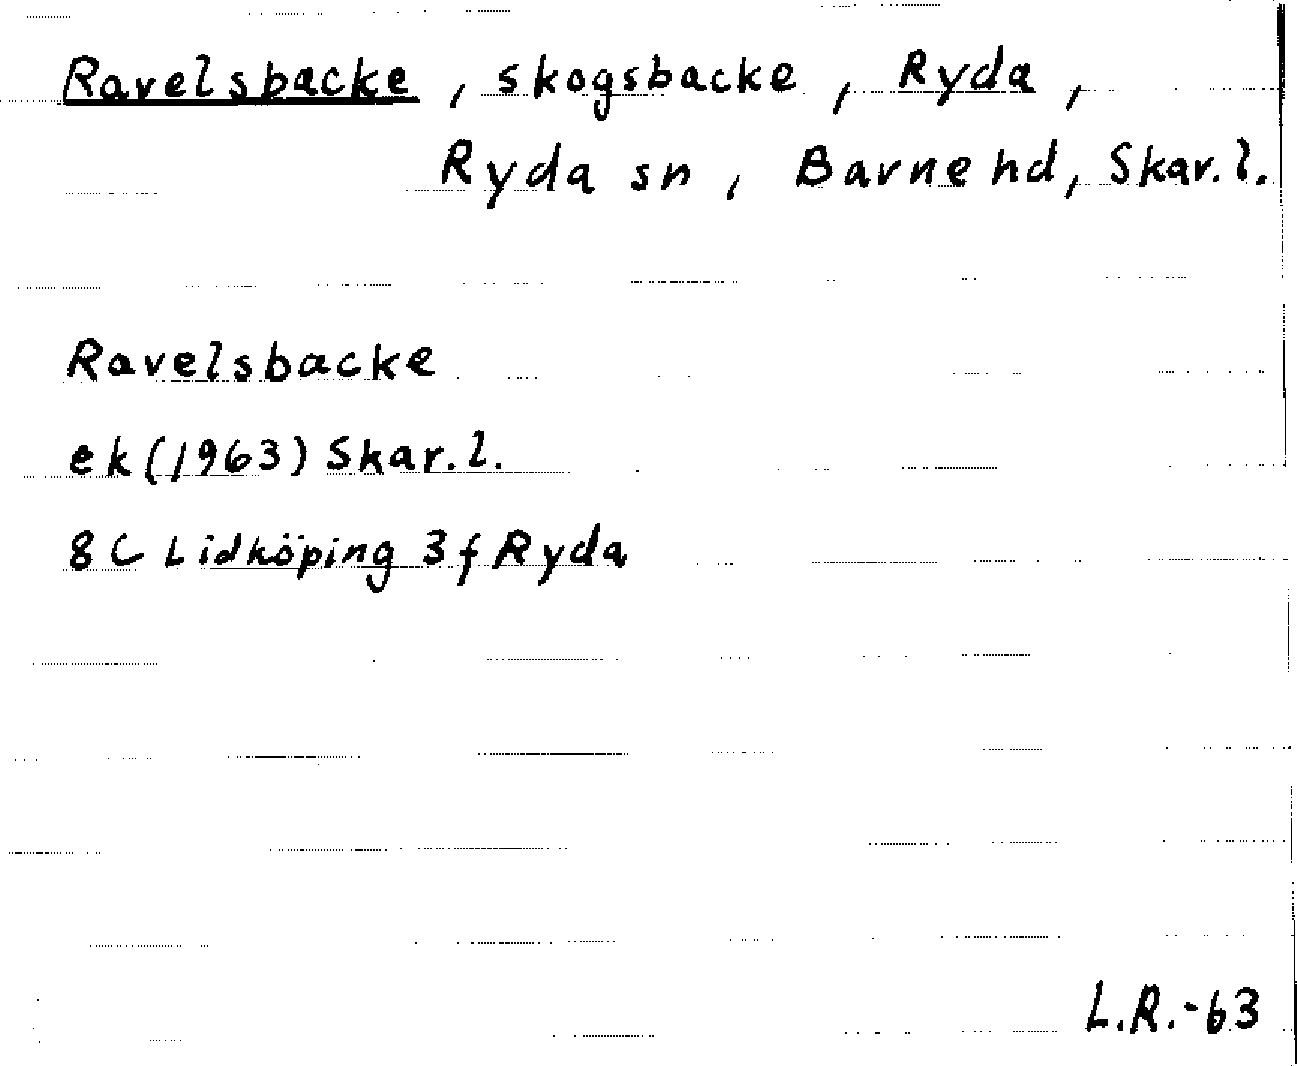 Ravelsbacke, skogsbacke, Ryda,
Ryda sn, Barne hd, Skar. l.
Ravelsbacke
ek (1963) Skar. l.
8C Lidköping 3f Ryda
L.R.-63